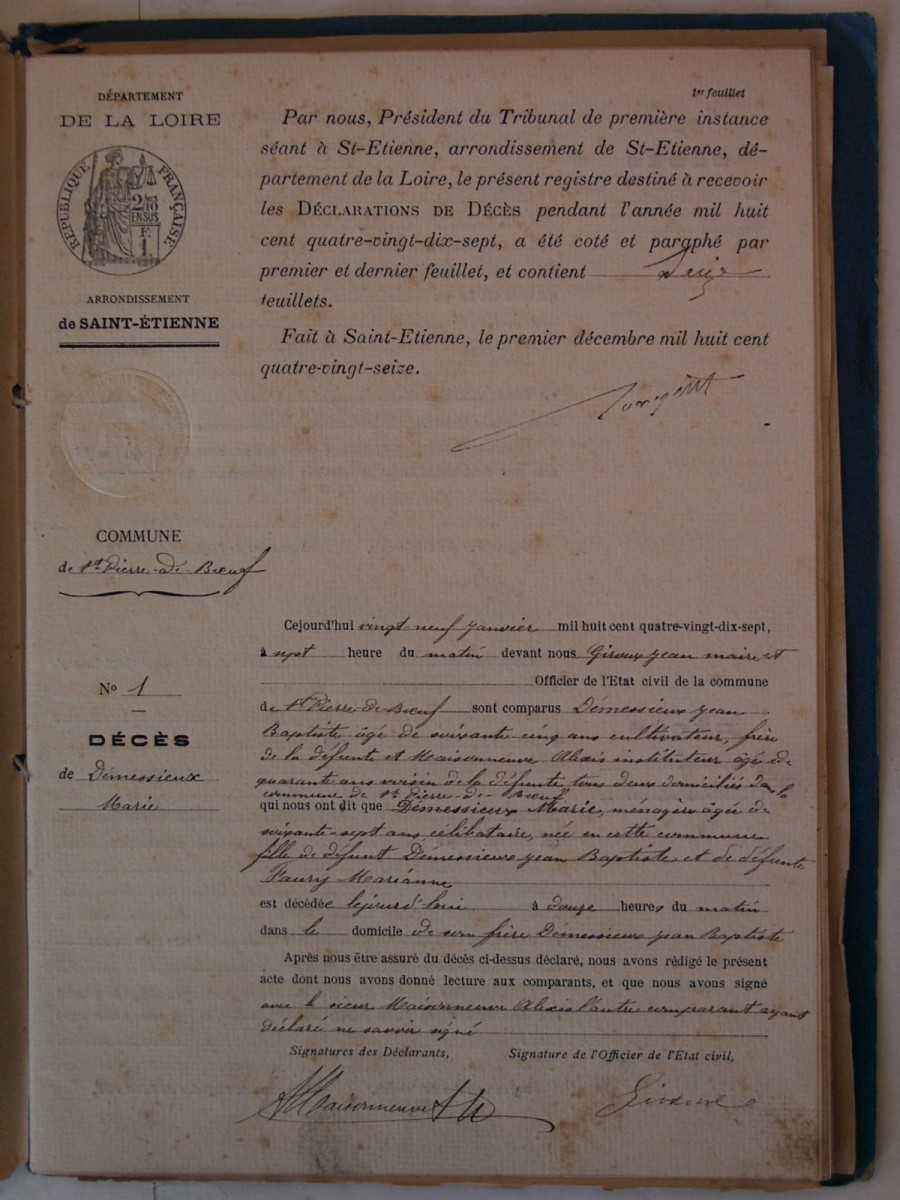 DÉPARTEMENT
DE LA LOIRE
RÉPUBLIQUE FRANÇAISE
ARRONDISSEMENT
de SAINT-ÉTIENNE
1er feuillet
Par nous, Président du Tribunal de première instance
séant à St-Etienne, arrondissement de St-Etienne, dé-
partement de la Loire, le présent registre destiné à recevoir
les DÉCLARATIONS DE DÉCÈS pendant l'année mil huit
cent quatre-vingt-dix-sept, a été coté et paraphé par
premier et dernier feuillet, et contient
feuillets.
Fait à Saint-Etienne, le premier décembre mil huit cent
quatre-vingt-seize.
COMMUNE
de St Pierre-de-Bœuf
No 1
DÉCÈS
de Démessieux
Marie
Cejourd'hui vingt neuf janvier mil huit cent quatre-vingt-dix-sept,
à sept heure du matin devant nous Giroux Jean maire et
Officier de l'Etat civil de la commune
de St Pierre-de-Bœuf sont comparus Démessieux Jean
Baptiste âgé de soixante cinq ans cultivateur, frère
de la défunte et Maisonneuve Alexis instituteur âgé de
quarante ans voisin de la défunte tous deux domiciliés dans la
commune de St Pierre-de-Bœuf
qui nous ont dit que Démessieux Marie, ménagère âgée de
soixante-sept ans, célibataire, née en cette commune
fille de défunt Démessieux Jean Baptiste et de défunte
Faury Marianne
est décédée le jour d'hui à douze heures du matin
dans le domicile de son frère Démessieux Jean Baptiste
Après nous être assuré du décès ci-dessus déclaré, nous avons rédigé le présent
acte dont nous avons donné lecture aux comparants, et que nous avons signé
avec le sieur Maisonneuve Alexis l'autre comparant ayant
déclaré ne savoir signé
Signatures des Déclarants,
Signature de l'Officier de l'Etat civil,
A Maisonneuve